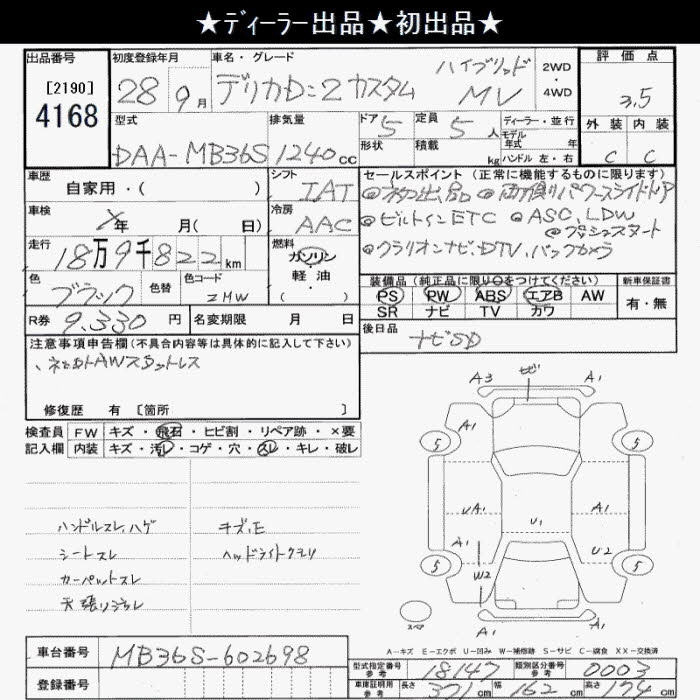 ★ディーラー出品★初出品★
出品番号
[2190]
4168
初度登録年月
28年 9月
車名・グレード
デリカD:2 カスタム ハイブリッド MV
2WD
・
4WD
評価点
3.5
外装 内装
C C
型式
DAA-MB36S
排気量
1240cc
ドア
5
形状
定員
5人
積載
kg
ディーラー・並行
モデル
年式 年
ハンドル 左・右
車歴
自家用・( )
シフト
IAT
車検
年 月( 日)
冷房
AAC
走行
18万9千822km
燃料
ガソリン
軽・油
・( )
色
ブラック
色替
色コード
ZMW
R券
9,330円
名変期限 月 日
セールスポイント(正常に機能するものに限ります)
◎ネタ出品 ◎両側パワースライドドア
◎ビルトインETC ◎ASC、LDW
◎プッシュスタート
◎クラリオンナビ、DTV、バックカメラ
装備品(純正品に限り○をつけてください)
PS PW ABS エアB AW
SR ナビ TV カワ
新車保証書
有・無
後日品
ナビSD
注意事項申告欄(不具合内容等は具体的に記入して下さい)
AWスタットレス
修復歴 有 [箇所 ]
検査員
記入欄
FW キズ・飛石・ヒビ割・リペア跡・×要
内装 キズ・汚レ・コゲ・穴・スレ・キレ・破レ
ハンドルスレ、ハゲ
シートスレ
カーペットスレ
天張リヨゴレ
キズ、E
ヘッドライトクモリ
A3 ゼ A1
A1
5 5
UA1 A1
U1
A1 U2
5 W2 5
A1 A1
スペア
A-キズ E-エクボ U-凹み W-補修跡 S-サビ C-腐食 XX-交換済
車台番号
MB36S-602698
登録番号
型式指定番号
参考
18147
類別区分番号
参考
0003
車庫証明用
参考
長さ 371cm 幅 162cm 高さ 174cm